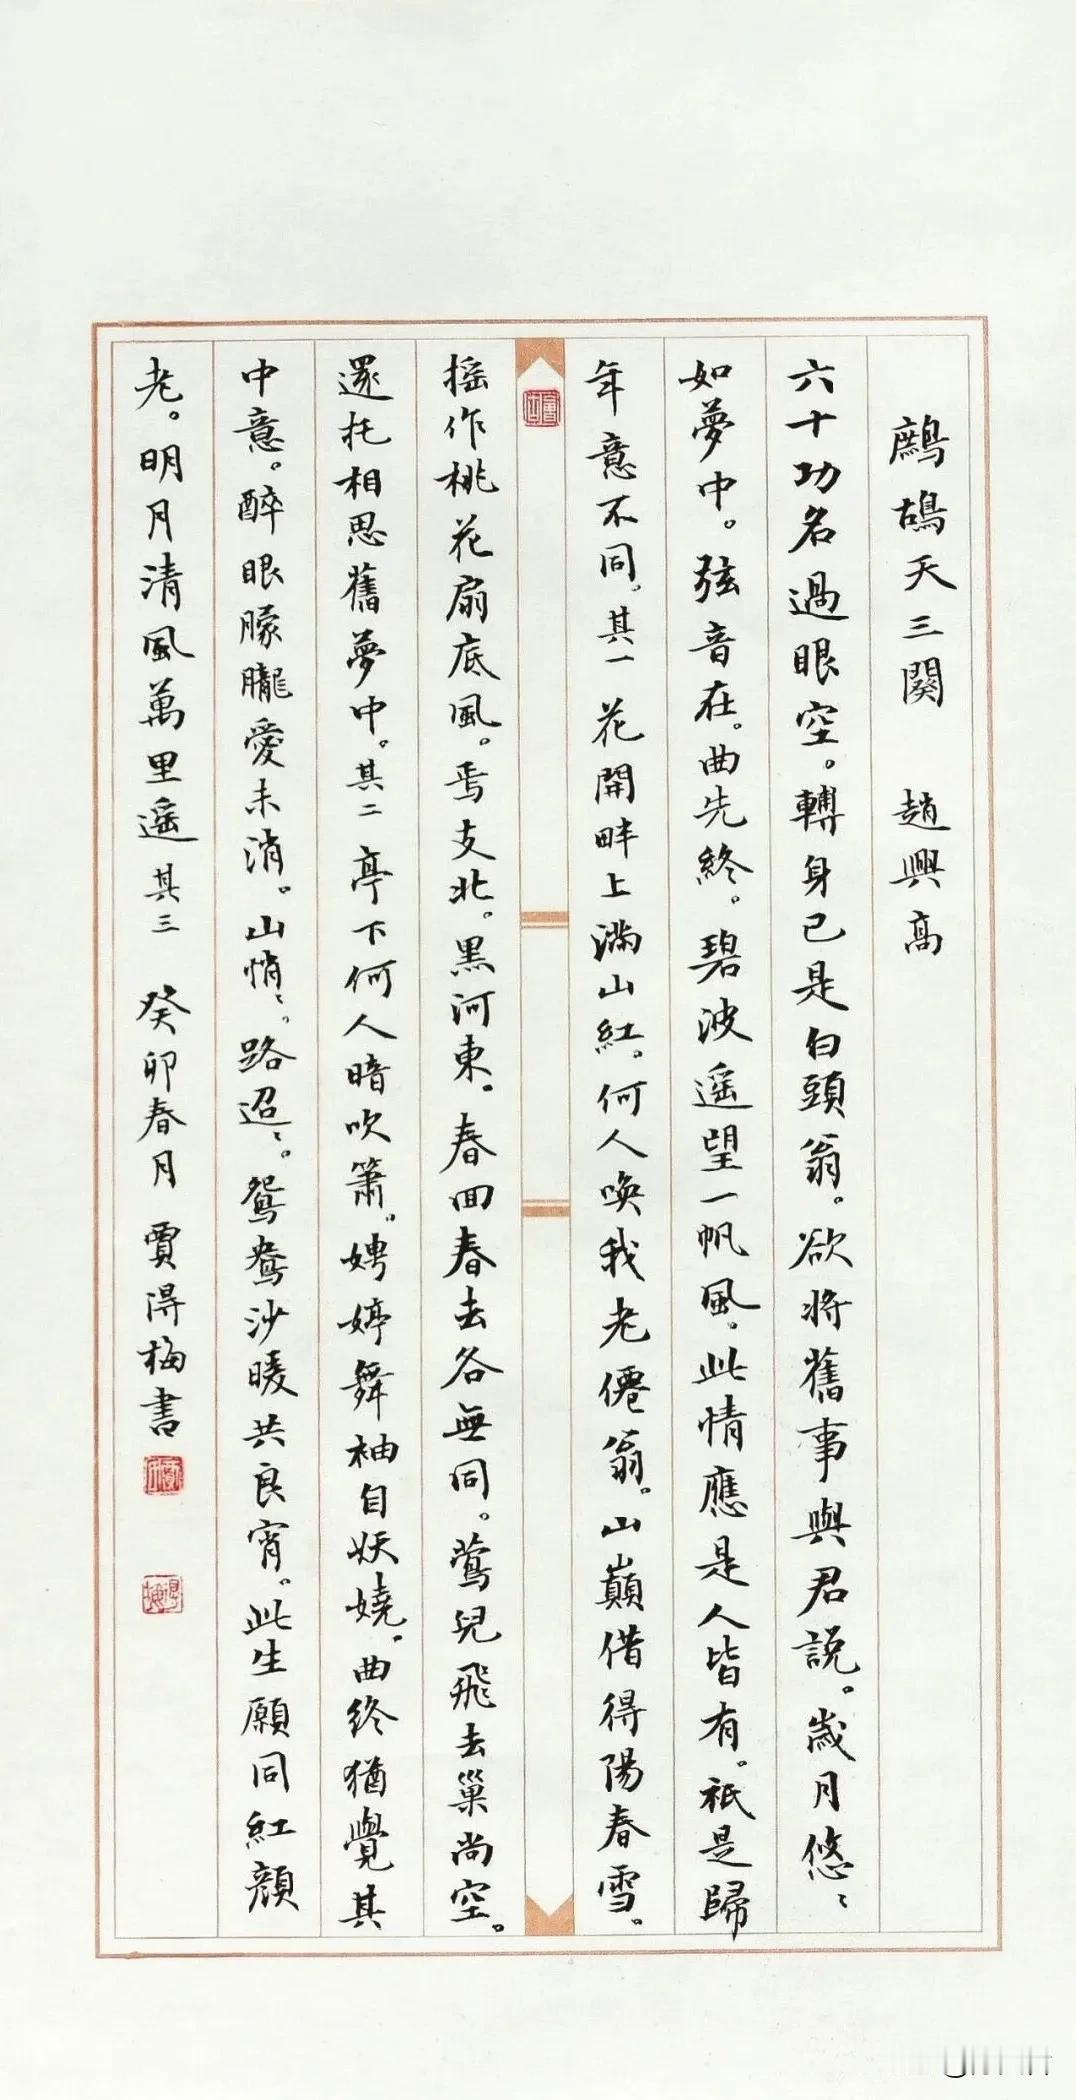 鷓鴣天三闋 趙興高
六十功名過眼空。轉身已是白頭翁。欲將舊事與君説。歲月悠〻
如夢中。弦音在。曲先終。碧波遥望一帆風。此情應是人皆有。祇是歸
年意不同。其一 花開畔上滿山紅。何人喚我老僊翁。山巔借得陽春雪。
摇作桃花扇底風。焉支北。黑河東。春回春去各無同。鶯兒飛去巢尚空。
還托相思舊夢中。其二 亭下何人暗吹簫。娉婷舞袖自妖嬈。曲終猶覺其
中意。醉眼朦朧愛未消。山悄〻。路迢〻。鴛鴦沙暖共良宵。此生願同紅顔
老。明月清風萬里遥 其三 癸卯春月 賈得梅書